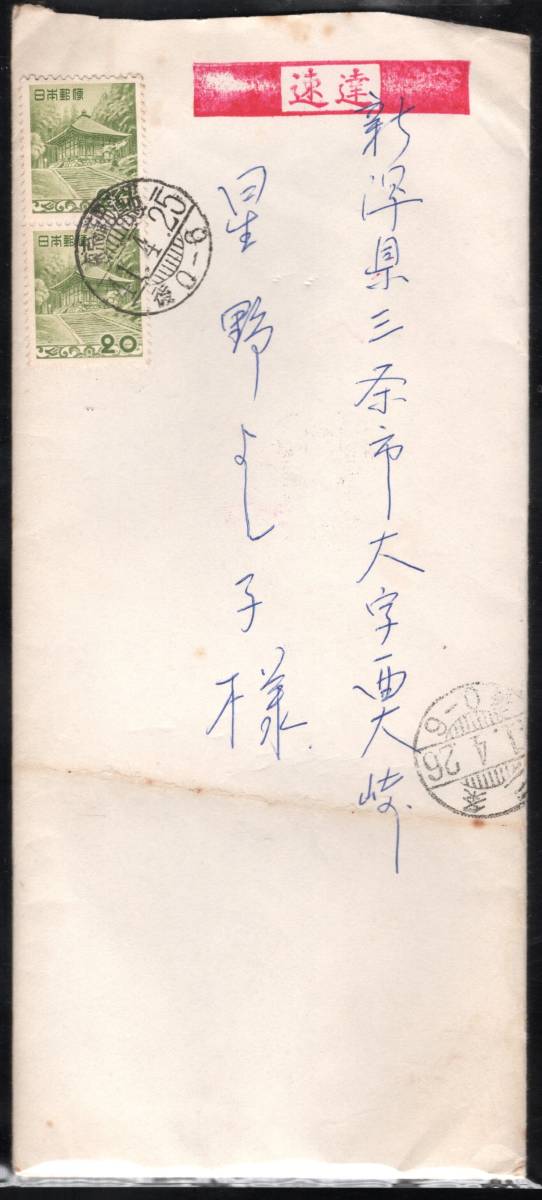 速達
新潟県三条市大字西大崎
星野よし子様
日本郵便
日本郵便
20
41.4.25
后0-6
1.4.26
0-6